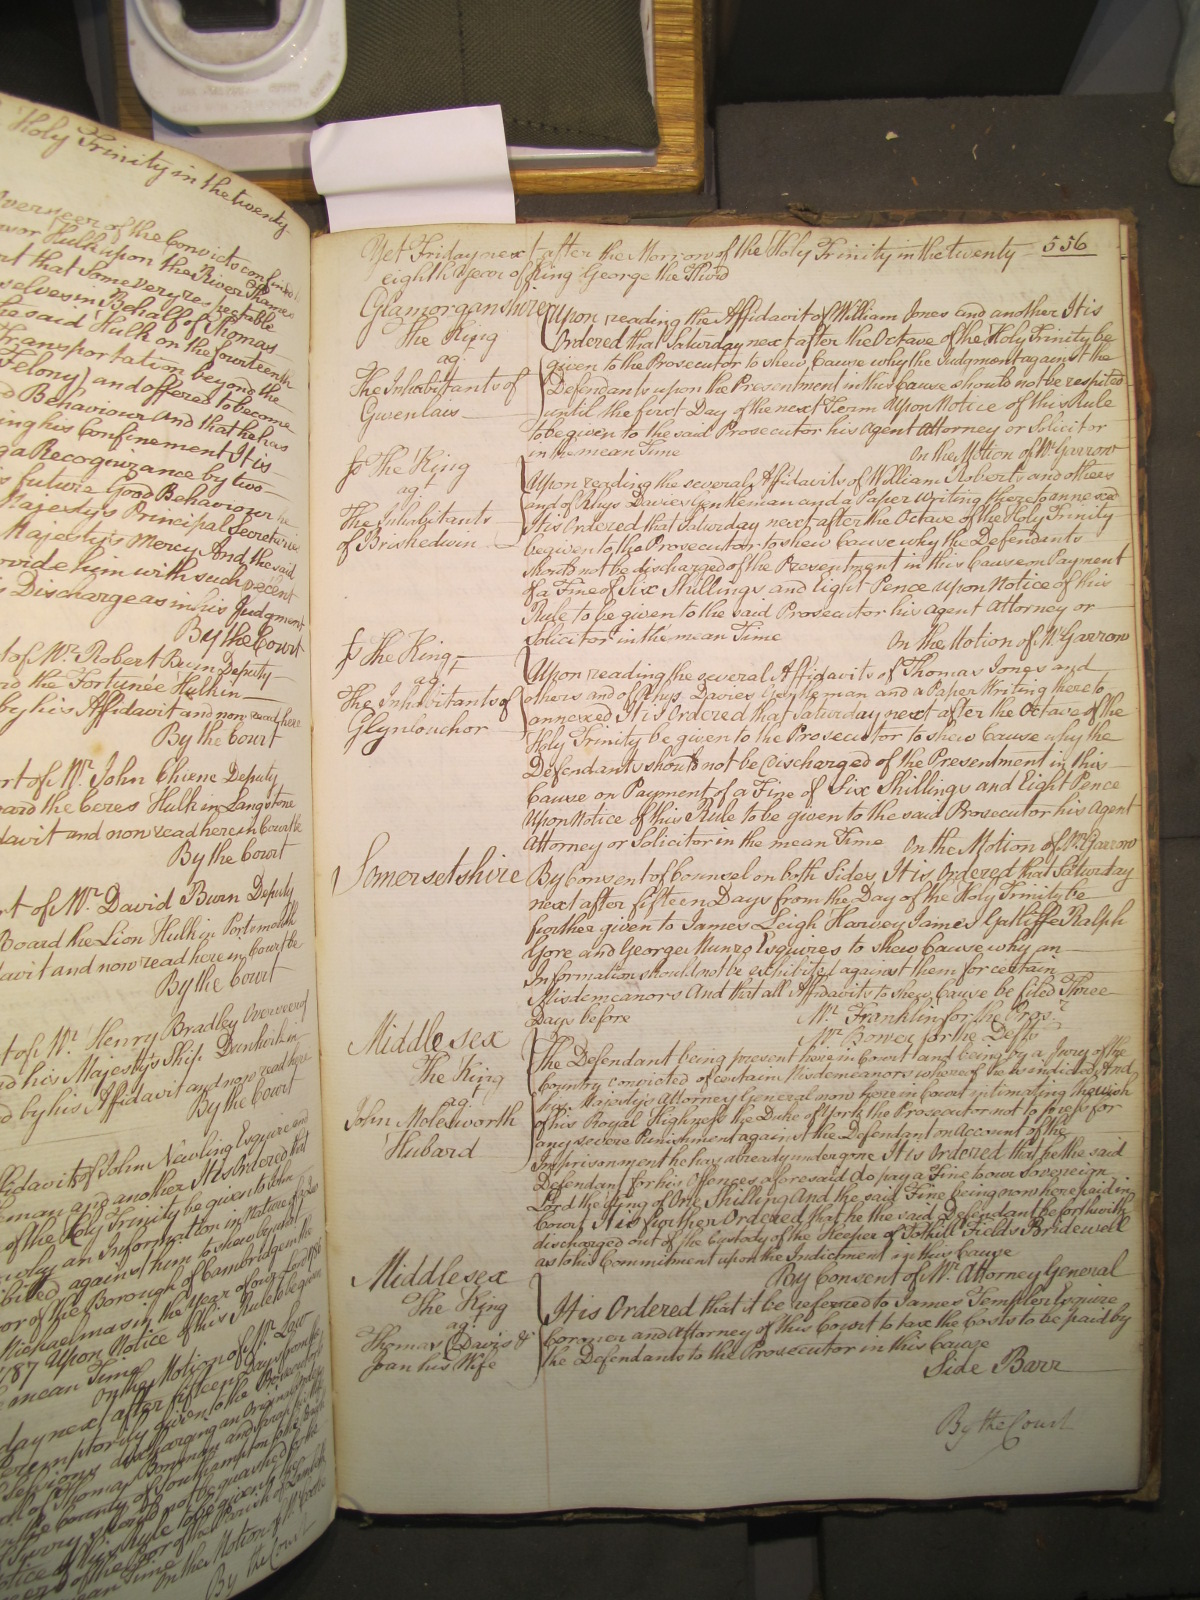 Holy Trinity in the twenty
Overseer of the Convicts confined
Hulk upon the River Thames
that some very respectable
selves in Behalf of Thomas
he said Hulk on the fourteenth
Transportation beyond the
Felony) and offered to become
Behaviour And that he has
ing his Confinement It is
a Recognizance by two
future Good Behaviour
Majesty's Principal Secretaries
Majesty's Mercy And the said
ovide him with such decent
Discharge as in his Judgment
By the Court
of Mr. Robert Deputy
the Fortunée Hulk in
by his Affidavit and now read here
By the Court
rt of Mr. John Deputy
oard the Ceres Hulk in Langstone
davit and now read here in Court be
By the Court
rt of Mr. David Burn Deputy
Board the Lion Hulk in Portsmouth
davit and now read here in Court be
By the Court
t of Mr. Henry Bradley Overseer of
d his Majesty's Ship Dunkirk in
d by his Affidavit and now read here
By the Court
ffidavit of John Newling Esquire and
man and another It is Ordered that
of the Holy Trinity be given to John
why an Information in Nature of
bited against him to shew by what
or of the Borough of Cambridge in the
Michaelmas in the Year of our Lord
1787 Upon Notice of this Rule to be given
e mean Time
On the Motion of Mr. Law
day next after fifteen Days from the
eremptorily given to the
Sessions discharging an Original Order
of Thomas Bowman and Sarah his
in the County of Southampton
should not be quashed
otice of this Rule to be given to the
ers of the Poor of the Parish of
ean Time On the Motion of Mr.
By the Court
Yet Friday next after the Morrow of the Holy Trinity in the twenty 556
eighth Year of King George the Third
Glamorganshire Upon reading the Affidavit of William Jones and another It is
The King Ordered that Saturday next after the Octave of the Holy Trinity be
agt given to the Prosecutor to shew Cause why the Judgment against the
The Inhabitants of Defendants upon the Presentment in this Cause should not be respited
Gwenlais until the first Day of the next Term Upon Notice of this Rule
to be given to the said Prosecutor his Agent Attorney or Solicitor
in the mean Time On the Motion of Mr. Garrow
fs The King Upon reading the several Affidavits of William Roberts and others
agt and of Rhys Davies Gentleman and a Paper Writing thereto annexed
The Inhabitants It is Ordered that Saturday next after the Octave of the Holy Trinity
of Briskedwin be given to the Prosecutor to shew Cause why the Defendants
should not be discharged of the Presentment in this Cause on Payment
of a Fine of Six Shillings and Eight Pence Upon Notice of this
Rule to be given to the said Prosecutor his Agent Attorney or
Solicitor in the mean Time On the Motion of Mr. Garrow
fs The King Upon reading the several Affidavits of Thomas Jones and
agt others and of Rhys Davies Gentleman and a Paper Writing thereto
The Inhabitants of annexed It is Ordered that Saturday next after the Octave of the
Glynlouchor Holy Trinity be given to the Prosecutor to shew Cause why the
Defendants should not be discharged of the Presentment in this
Cause on Payment of a Fine of Six Shillings and Eight Pence
Upon Notice of this Rule to be given to the said Prosecutor his Agent
Attorney or Solicitor in the mean Time On the Motion of Mr. Garrow
Somersetshire By Consent of Counsel on both Sides It is Ordered that Saturday
next after fifteen Days from the Day of the Holy Trinity be
further given to James Leigh Harvey James Gatliffe Ralph
Gore and George Munro Esquires to shew Cause why an
Information should not be exhibited against them for certain
Misdemeanors And that all Affidavits to shew Cause be filed Three
Days before Mr. Franklin for the Pros.r
Mr. Bower for the Defts
Middlesex The Defendant being present here in Court and being by a Jury of the
The King Country convicted of certain Misdemeanors whereof he is indicted And
agt his Majesty's Attorney General now here in Court intimating the wish
John Molesworth of his Royal Highness the Duke of York the Prosecutor not to press for
Hubard any severe Punishment against the Defendant on Account of the
Imprisonment he has already undergone It is Ordered that he the said
Defendant for his Offences aforesaid do pay a Fine to our Sovereign
Lord the King of One Shilling And the said Fine being now here paid in
Court It is further Ordered that he the said Defendant be forthwith
discharged out of the Custody of the Keeper of Tothill Fields Bridewell
as to his Commitment upon the Indictment in this Cause
By Consent of Mr. Attorney General
Middlesex
The King It is Ordered that it be referred to James Templer Esquire
agt Coroner and Attorney of this Court to tax the Costs to be paid by
Thomas Davis & the Defendants to the Prosecutor in this Cause
Joan his Wife Side Barr
By the Court